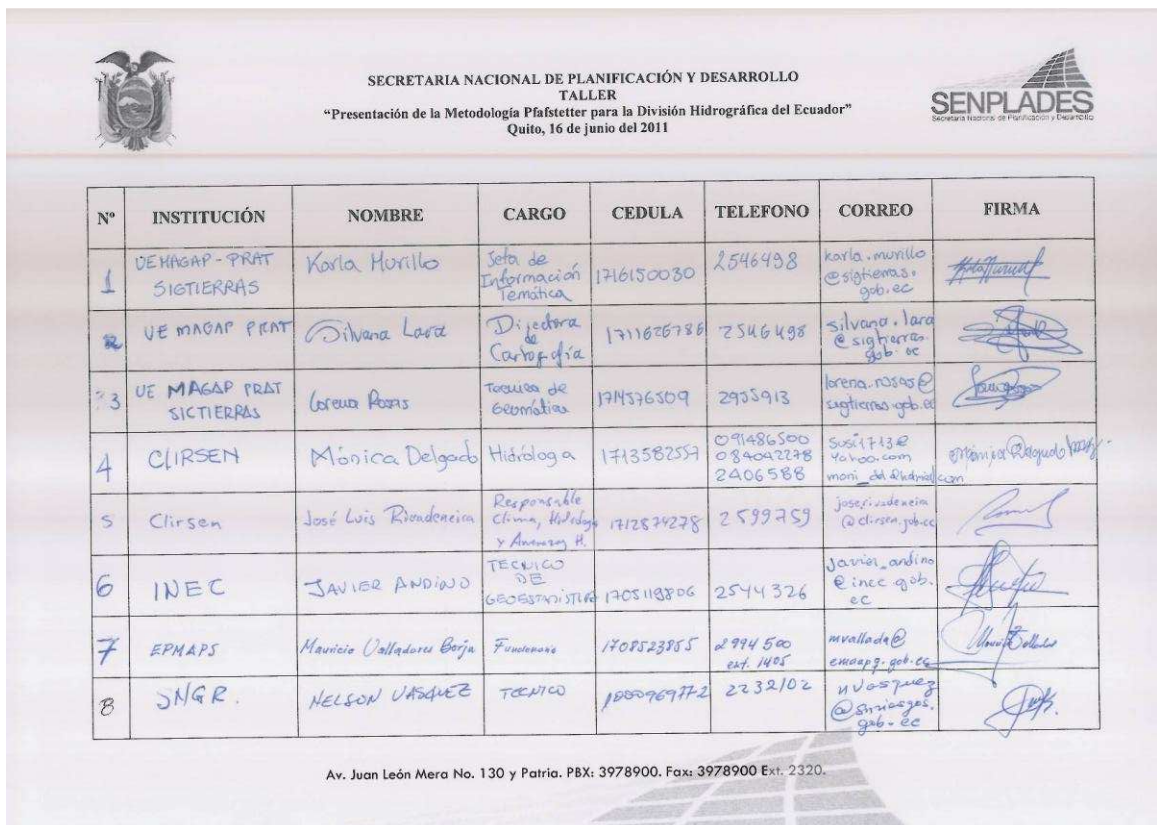 SECRETARIA NACIONAL DE PLANIFICACIÓN Y DESARROLLO
TALLER
“Presentación de la Metodología Pfafstetter para la División Hidrográfica del Ecuador”
Quito, 16 de junio del 2011
SENPLADES
Secretaría Nacional de Planificación y Desarrollo
N° INSTITUCIÓN NOMBRE CARGO CEDULA TELEFONO CORREO FIRMA
1 UEMAGAP-PRAT SIGTIERRAS Karla Murillo Jefa de Información Temática 1716150030 2546498 karla.murillo@sigtierras.gob.ec
2 UE MAGAP PRAT Silvana Lara Directora de Cartografía 1711626786 2546498 silvana.lara@sigtierras.gob.ec
3 UE MAGAP PRAT SIGTIERRAS Lorena Rosas Técnica de Geomática 1714576509 2955913 lorena.rosas@sigtierras.gob.ec
4 CLIRSEN Mónica Delgado Hidróloga 1713582557 091486500 084042278 2406588 susi1713@yahoo.com moni_del@hotmail.com
5 Clirsen José Luis Rivadeneira Responsable Clima, Hidrología y 1712874278 2599759 @clirsen.gob.ec
6 INEC JAVIER ANDINO TECNICO DE GEOESTADISTICA 1705119806 2544326 javier_andino@inec.gob.ec
7 EPMAPS Mauricio Valladares Borja Funcionario 1708523855 2994500 ext. 1405 mvallada@emaapq.gob.ec
8 SNGR. NELSON VASQUEZ TECNICO 2232102 nvasquez@snriesgos.gob.ec
Av. Juan León Mera No. 130 y Patria. PBX: 3978900. Fax: 3978900 Ext. 2320.